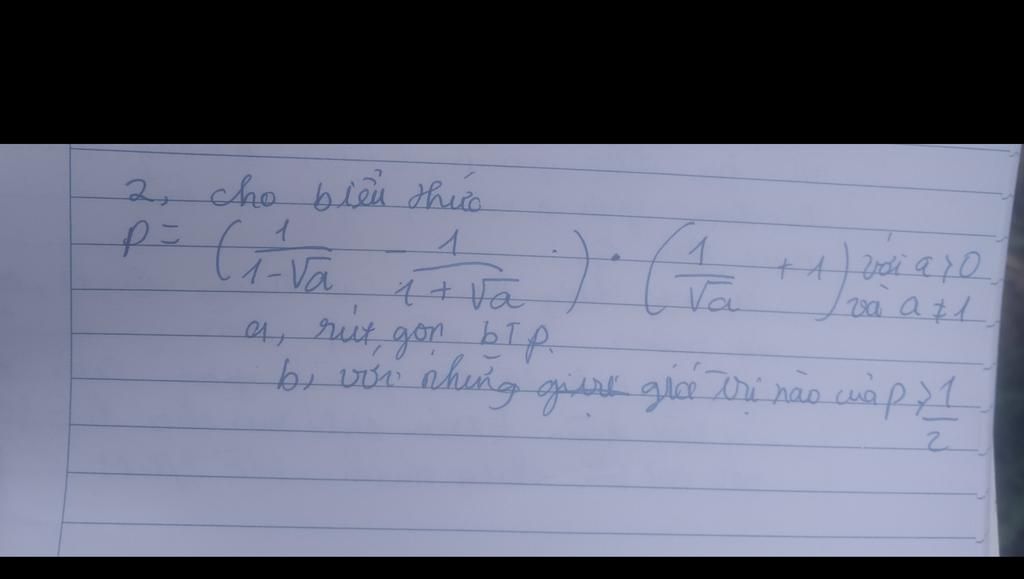 2, cho biểu thức
P = ( 1/(1-√a) - 1/(1+√a) ) . ( 1/√a + 1 ) với a > 0
và a ≠ 1
a, rút gọn bT P.
b, với những giá trị nào của P > 1/2